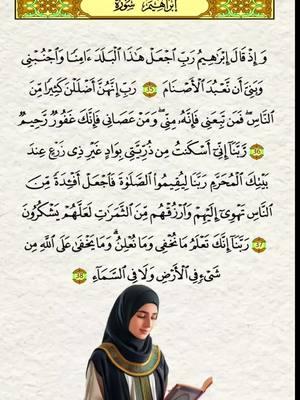 سُورَةُ إِبْرَاهِيمَ
وَإِذْ قَالَ إِبْرَاهِيمُ رَبِّ اجْعَلْ هَٰذَا الْبَلَدَ ءَامِنًا وَاجْنُبْنِي
وَبَنِيَّ أَن نَّعْبُدَ الْأَصْنَامَ 35 رَبِّ إِنَّهُنَّ أَضْلَلْنَ كَثِيرًا مِّنَ
النَّاسِ فَمَن تَبِعَنِي فَإِنَّهُ مِنِّي وَمَنْ عَصَانِي فَإِنَّكَ غَفُورٌ رَّحِيمٌ
36 رَّبَّنَا إِنِّي أَسْكَنتُ مِن ذُرِّيَّتِي بِوَادٍ غَيْرِ ذِي زَرْعٍ عِندَ
بَيْتِكَ الْمُحَرَّمِ رَبَّنَا لِيُقِيمُوا الصَّلَوٰةَ فَاجْعَلْ أَفْئِدَةً مِّنَ
النَّاسِ تَهْوِي إِلَيْهِمْ وَارْزُقْهُم مِّنَ الثَّمَرَاتِ لَعَلَّهُمْ يَشْكُرُونَ
37 رَبَّنَا إِنَّكَ تَعْلَمُ مَا نُخْفِي وَمَا نُعْلِنُ وَمَا يَخْفَىٰ عَلَى اللَّهِ مِن
شَيْءٍ فِي الْأَرْضِ وَلَا فِي السَّمَاءِ 38